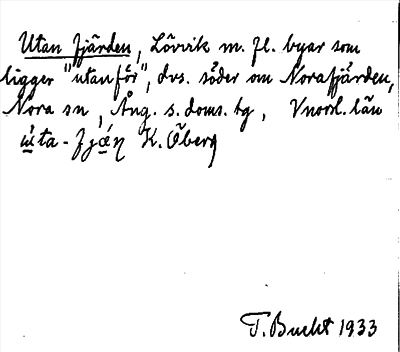 Utan fjärden, Lövvik m. fl. byar som
ligger "utanför", dvs. söder om Norafjärden,
Nora sn, Ång. s. doms. tg, Vnorrl. län
ụ́ta-fjǽ̣ɳ K. Öberg
T. Bucht 1933